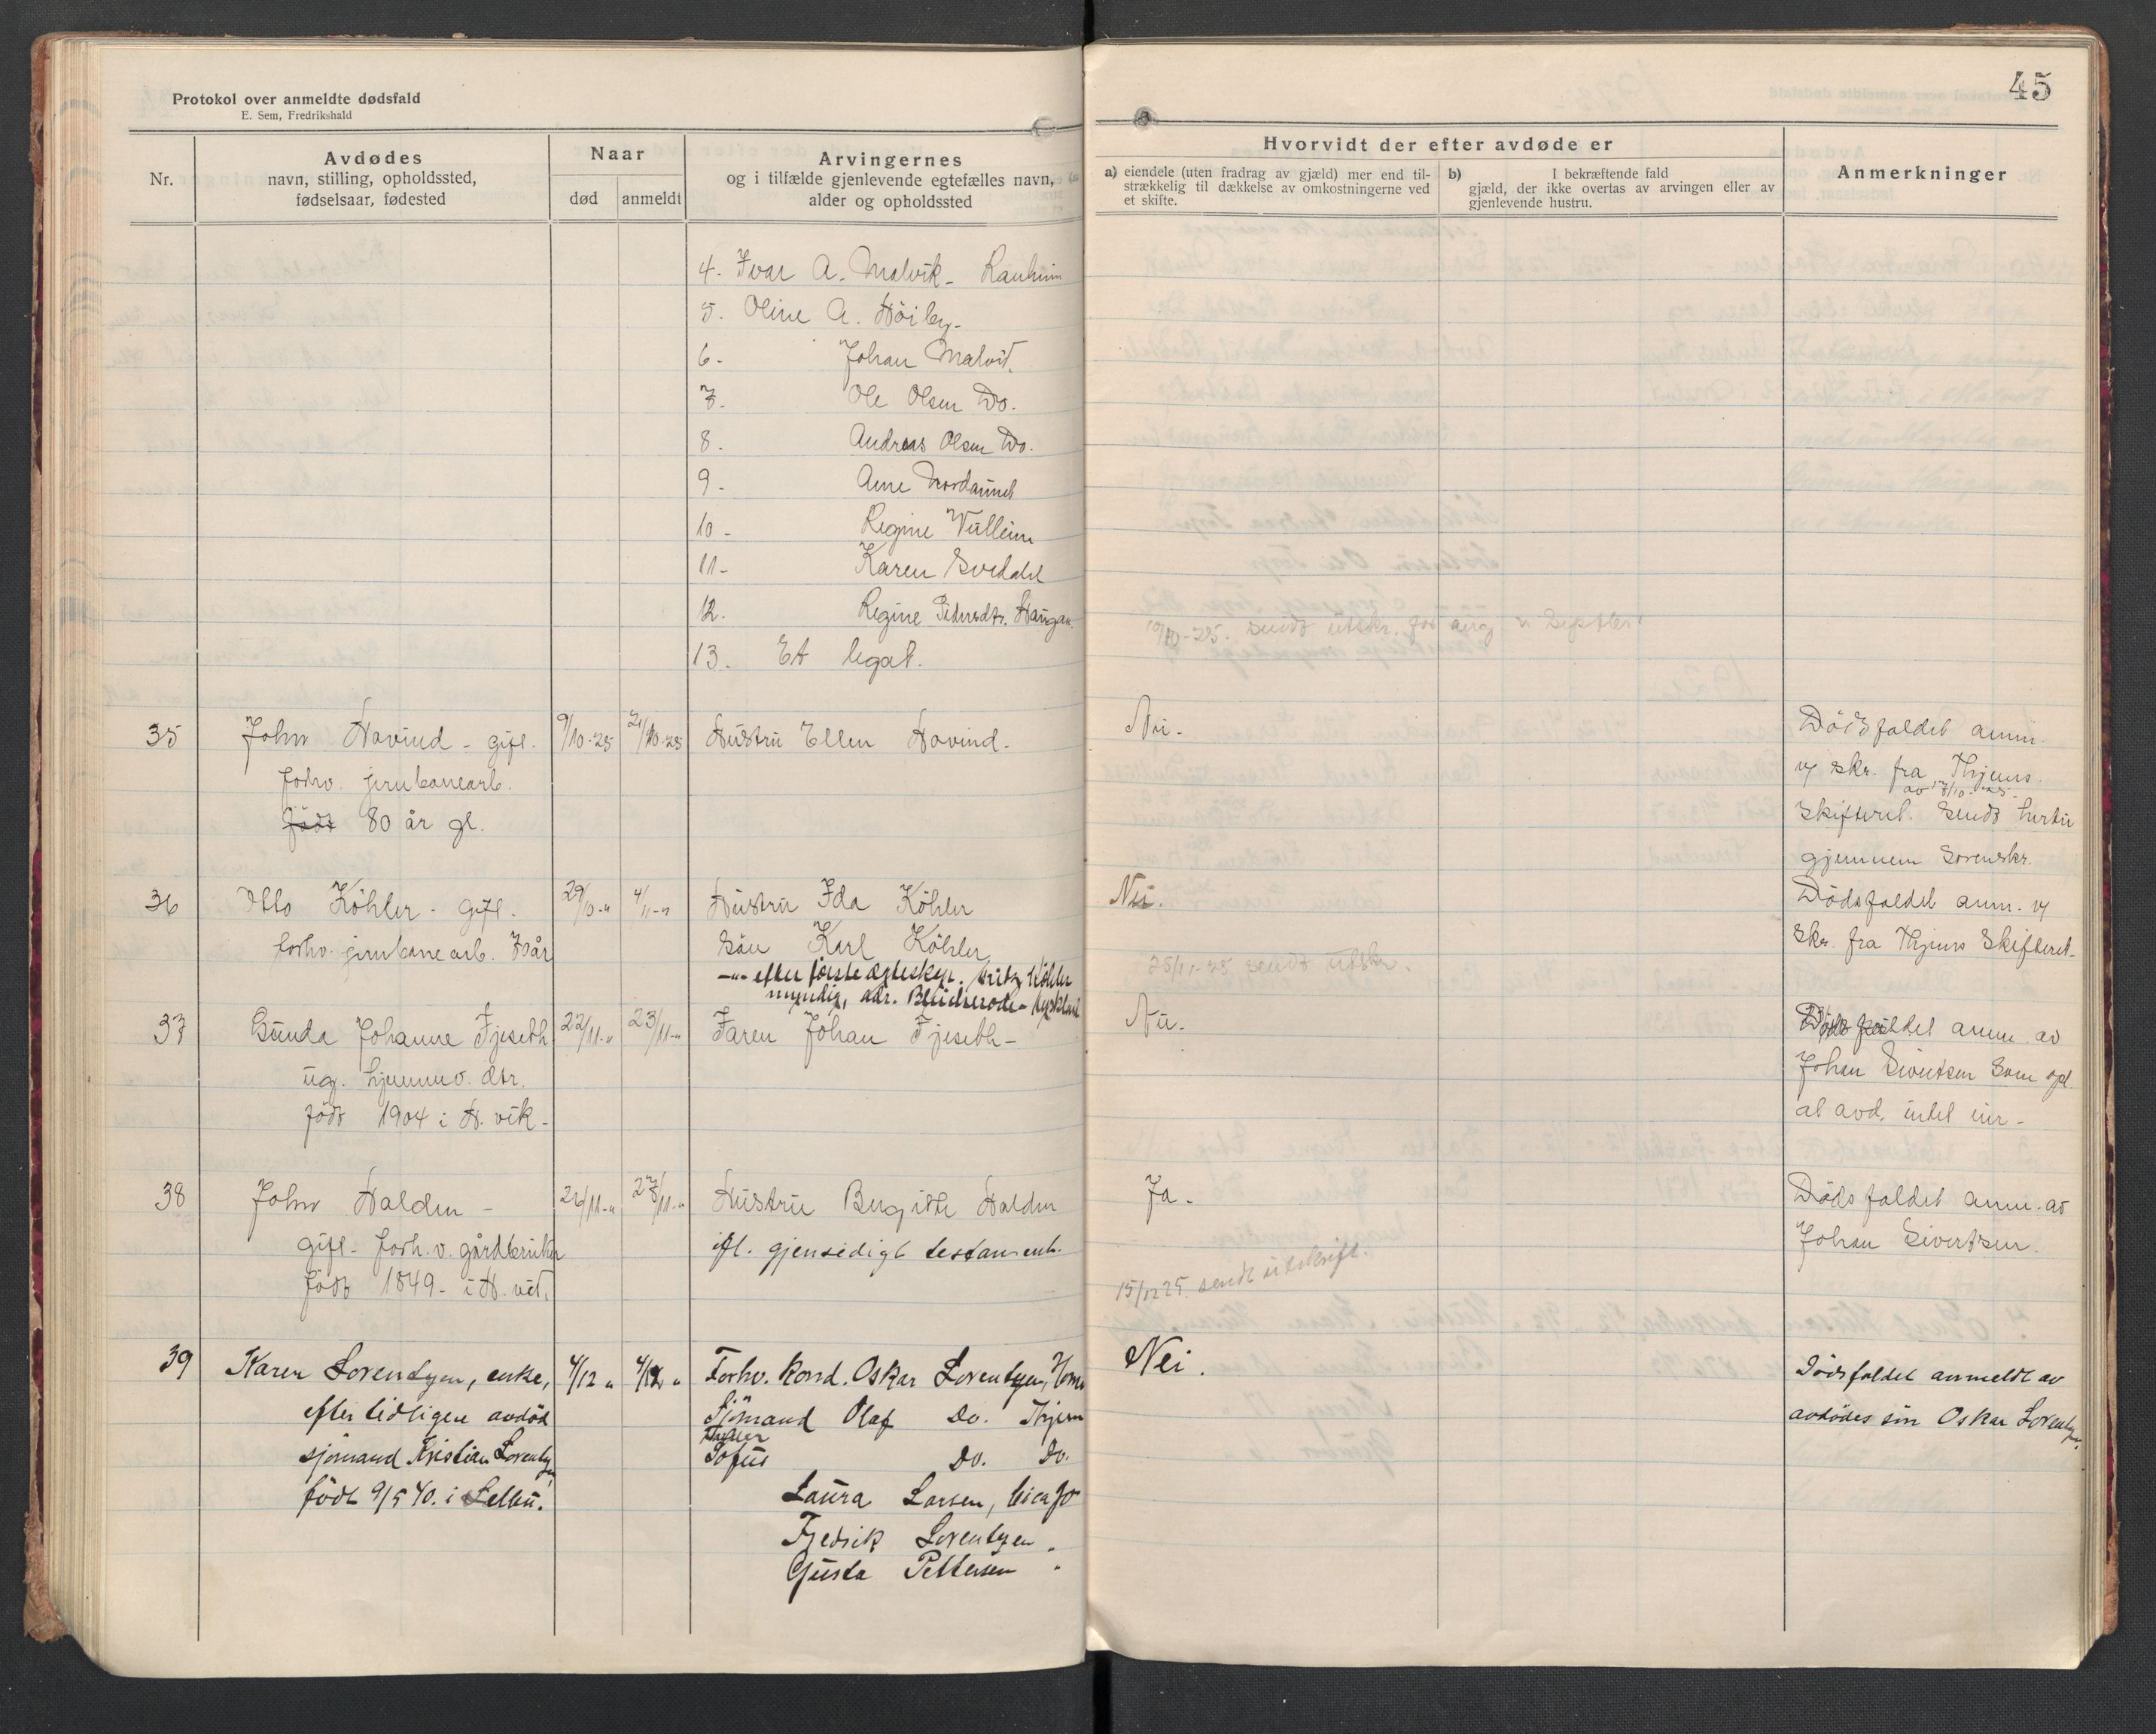 Protokol over anmeldte dødsfald
E. Sem, Fredrikshald
45
Nr.
Avdødes
navn, stilling, opholdssted,
fødselsaar, fødested
Naar
død
anmeldt
Arvingernes
og i tilfælde gjenlevende egtefælles navn,
alder og opholdssted
Hvorvidt der efter avdøde er
a) eiendele (uten fradrag av gjæld) mer end til-
strækkelig til dækkelse av omkostningerne ved
et skifte.
b) I bekræftende fald
gjæld, der ikke overtas av arvingen eller av
gjenlevende hustru.
Anmerkninger
4. Ivar A. Malvik - Ranheim
5. Oline A. Höiby -
6. - Johan Malvik.
7. Ole Olsen Do.
8. Andreas Olsen Do.
9 - Arne Nordaunet
10 - Regine Vullum
11 - Karen
12. Regine Haugan
13. Et legat.
19/10-25. sendt utskr.
35 John Hovind - gift. 9/10-25 21/10-25 Hustru Ellen Hovind. Nei. Dödsfaldet anm.
forhv. jernbanearb.
v/ skr. fra Thjems
80 år gl.
Skifteret. Sendt
gjennem Sorenskr.
36 Otto Köhler - gift. 29/10-" 4/11-" Hustru Ida Köhler Nei. Dödsfaldet anm. v/
forhv. jernbanearb. 70 år
Sön Karl Köhler
skr. fra Thjems Skifteret.
-"- efter første ægteskap. Fritz Köhler
25/11-25 sendt utskr.
myndig, adr. - Tyskland
37 Gunda Johanne Fjeseth 22/11-" 23/11-" Faren Johan Fjeseth - Nei. Dödsfaldet anm. av
ug. hjemmev. dtr.
Johan Sivertsen som opl.
født 1904 i H.vik -
at avd. intet eier -
38 John Halden - 26/11-" 27/11-" Hustru Birgitte Halden Ja. Dödsfaldet anm. av
gift - forh.v. gårdbruker
ifl. gjensidigt testament.
Johan Sivertsen.
født 1849 - i H.vik.
15/12 25. sendt utskrift.
39 Karen Lorentzen, enke, 4/12 " 4/12 " Forhv. kond. Oskar Lorentzen, Nei. Dödsfaldet anmeldt av
efter tidligere avdöd
Sjömand Olaf Do. Thjem
avdødes sön Oskar Lorentzen.
sjömand Kristian Lorentzen
Sofus Do. Do.
født 9/5 40. i Selbu.
Laura Larsen,
Fredrik Lorentzen "
Gusta Pettersen "